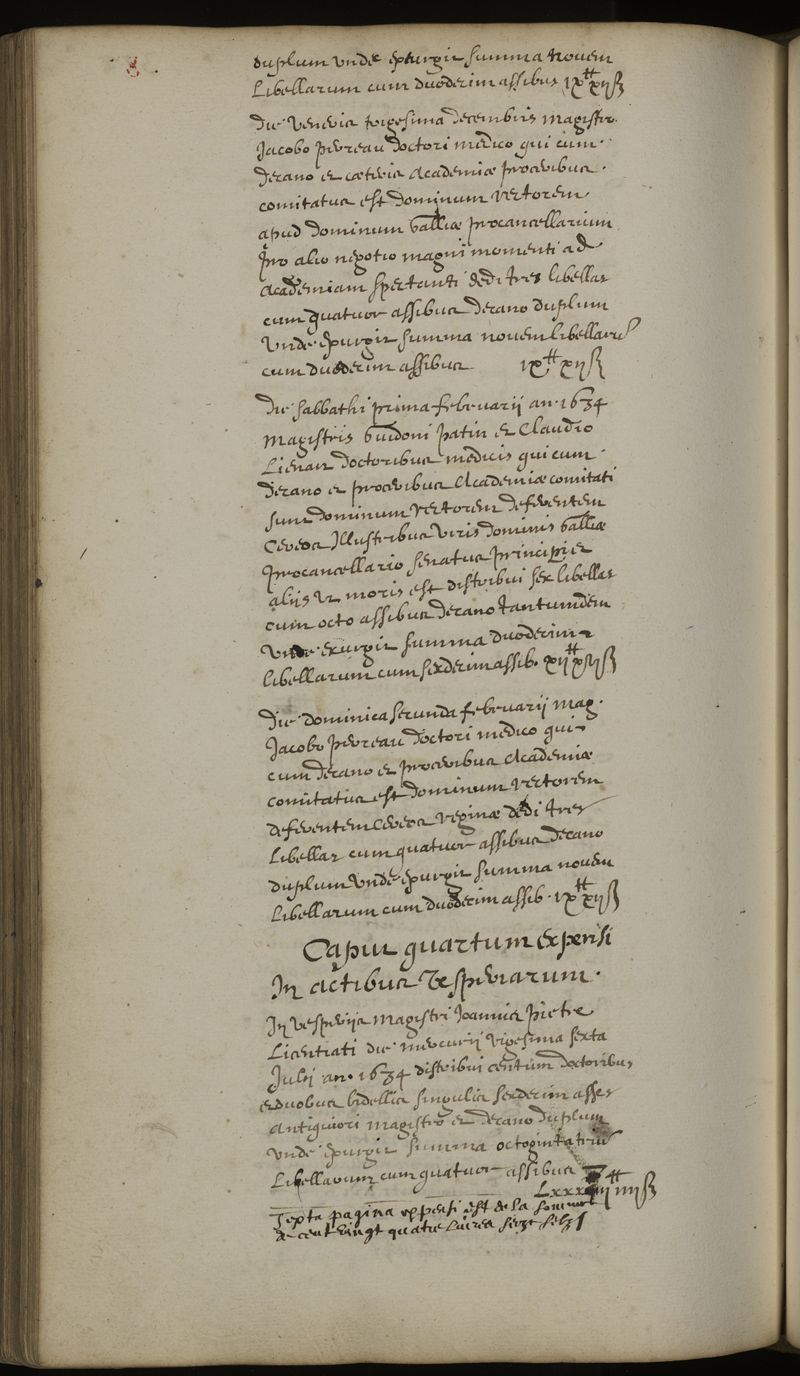 duplum unde exurgit summa novem
libellarum cum duodecim assibus ix^tt xii ß
die veneris trigesima decembris magistro
Jacobo perreau doctori medico qui cum
decano et cæteris Academiæ proceribus
comitatus est dominum rectorem
apud dominum Galliæ procancellarium
pro alio negotio magni momenti ad
academiam spectanti dedi tres libellas
cum quatuor assibus decano duplum
unde exurgit summa novem libellarum
cum duodecim assibus ix^tt xii ß
die sabbathi prima februarii an. 1634
magistris Guidoni patin et Claudio
Lienar doctoribus medicis qui cum
decano et proceribus Academiæ comitati
sunt dominum rectorem deferentem
cereos Illustribus viris dominis Galliæ
procancellario senatus principi et
aliis ut moris est distribui sex libellas
cum octo assibus decano tantumdem
unde exurgit summa duodecim
libellarum cum sexdecim assib. xii^tt xvi ß
die dominica secunda februarii mag.
Jacobo perreau doctori medico qui
cum decano et proceribus Academiæ
comitatus est dominum rectorem
deferentem cereos reginæ dedi tres
libellas cum quatuor assibus decano
duplum unde exurgit summa novem
libellarum cum duodecim assib. ix^tt xii ß
Caput quartum expensi
In actibus Vesperiarum.
In vesperiis magistri Joannis pietre
Licentiati die mercurii vigesima sexta
Julii an. 1634 distribui centum doctoribus
et duobus bidellis singulis sexdecim asses
antiquiori magistro et decano duplum
unde exurgit summa octoginta trium
libellarum cum quatuor assibus
Lxxxiii^tt iiii ß
Sexta pagina expensi est de la somme
de cent vingt quatre livres seize solz